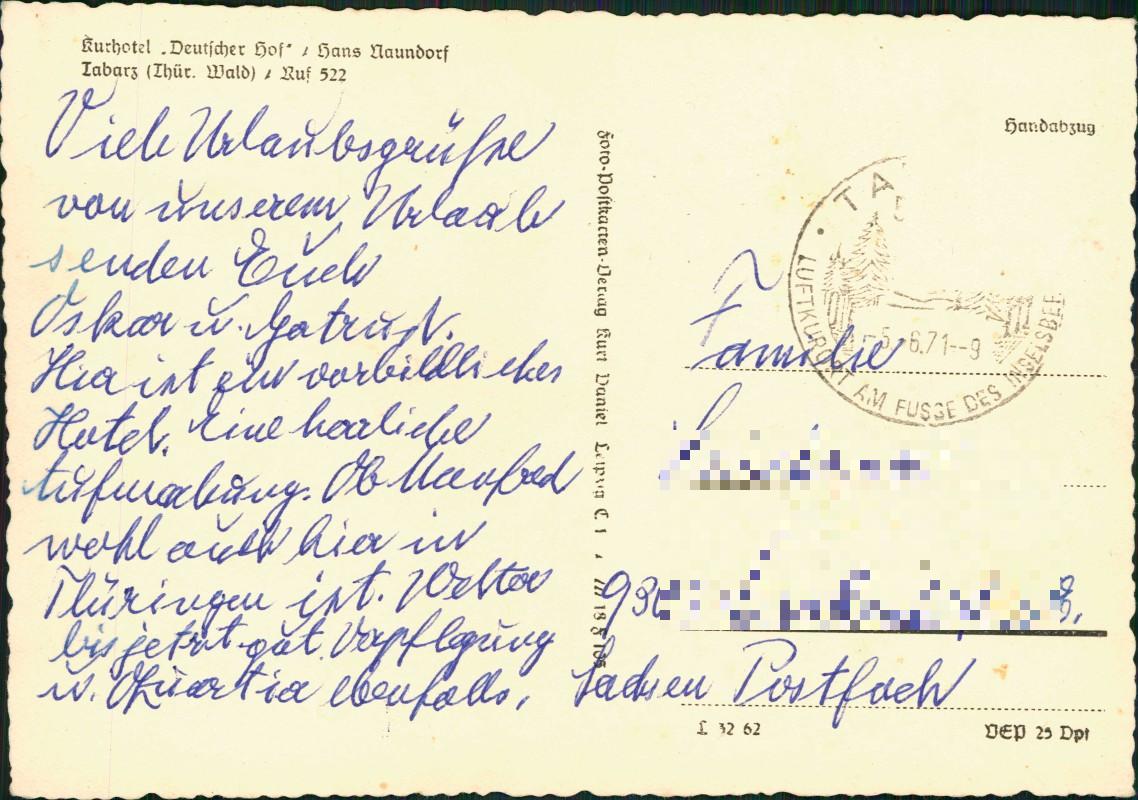 Kurhotel „Deutscher Hof“ / Hans Naundorf
Tabarz (Thür. Wald) / Ruf 522
Viele Urlaubsgrüße
von unserem Urlaub
senden Euch
Oskar u. Gertrud.
Hier ist ein vorbildliches
Hotel. Eine herrliche
Aufmachung. Ob Manfred
wohl auch hier in
Thüringen ist. Wetter
bis jetzt gut. Verpflegung
u. Quartier ebenfalls,
Foto-Postkarten-Verlag Kurt Daniel Leipzig C 1 / III 18 8
Handabzug
TA
LUFTKURORT AM FUSSE DES INSELSBE
-5.-6.71--9
Familie
930
Sachsen Postfach
L 32 62
VEP 25 Dpf